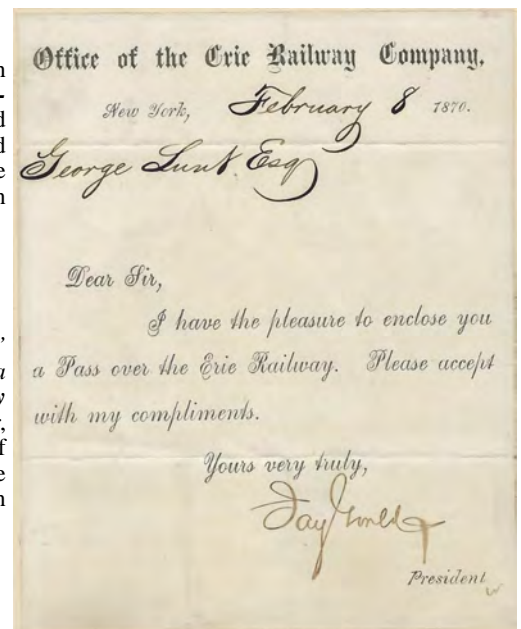 Office of the Erie Railway Company,
New York, February 8 1870.
George Lunt, Esq
Dear Sir,
I have the pleasure to enclose you
a Pass over the Erie Railway. Please accept
with my compliments.
Yours very truly,
Jay Gould
President